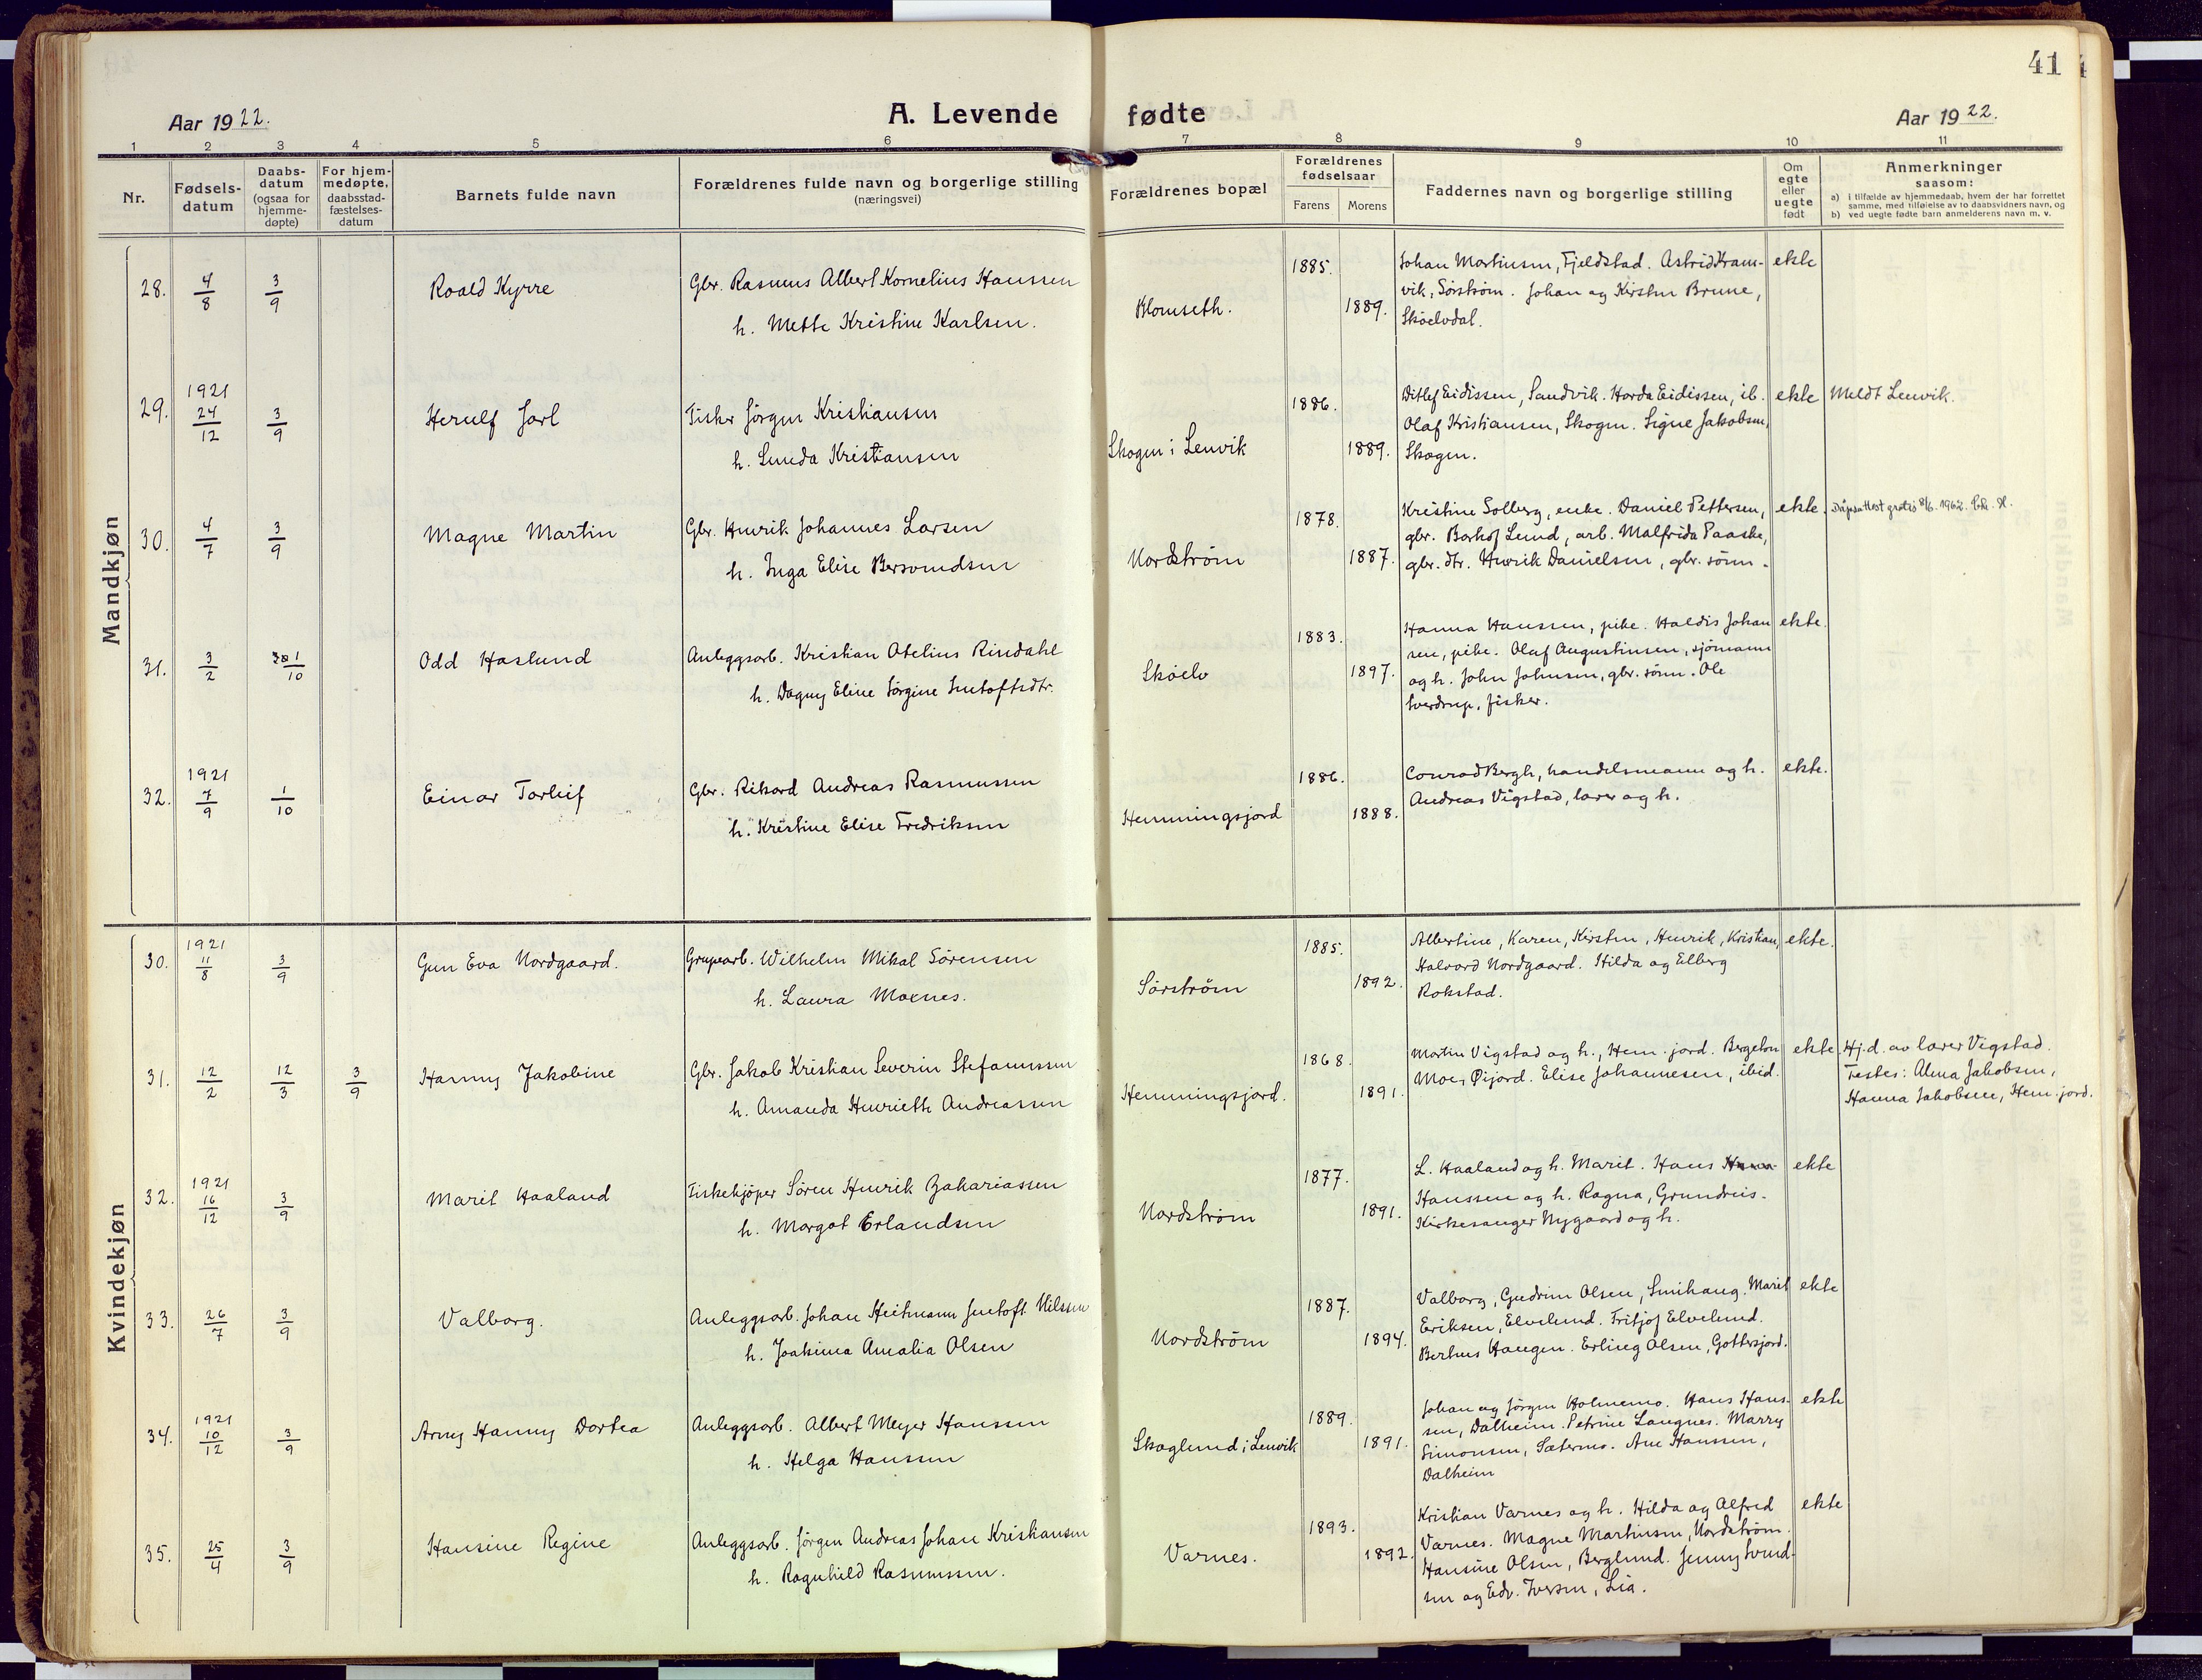 41
Aar 1922.
A. Levende fødte
Aar 1922.
1 2 3 4 5 6 7 8 9 10 11
Nr.
Fødsels-
datum
Daabs-
datum
(ogsaa for
hjemme-
døpte)
For hjem-
medøpte,
daabsstad-
fæstelses-
datum
Barnets fulde navn
Forældrenes fulde navn og borgerlige stilling
(næringsvei)
Forældrenes bopæl
Forældrenes
fødselsaar
Farens Morens
Faddernes navn og borgerlige stilling
Om
egte
eller
uegte
født
Anmerkninger
saasom:
a) i tilfælde av hjemmedaab, hvem der har forrettet
samme, med tilføielse av to daabsvidners navn, og
b) ved uegte fødte barn anmelderens navn m. v.
Mandkjøn
28. 4/8 3/9 Roald Kyrre
Gbr. Rasmus Albert Kornelius Hanssen
h. Mette Kristine Karlsen.
Blomseth.
1885.
1889.
Johan Martinsen, Fjeldstad. Astrid Kram-
vik, Sørstrøm. Johan og Kirsten Brune,
Skøelvdal.
ekte
29. 1921 24/12 3/9 Herulf Jarl
Fisker Jørgen Kristiansen
h. Kristiansen
Skogen i Lenvik
1886.
1889.
Ditlef Eidissen, Sandvik. Harda Eidissen, ib.
Olaf Kristiansen, Skogen. Signe Jakobsen,
Skogen.
ekte
Meldt Lenvik.
30. 4/7 3/9 Magne Martin
Gbr. Henrik Johannes Larsen
h. Inga Elise Bersvendsen
Nordstrøm
1878.
1887.
Kristine Solberg, enke. Daniel Pettersen,
gbr. Lund, arb. Malfrida Paaske,
gbr. dtr. Henrik Danielsen, gbr. sønn.
ekte.
Dåpsattest gratis 8/6. 1962.
31. 3/2 1/10 Odd Haslund
Anleggsarb. Kristian Atelius Rindahl
h. Dagny Eline Jørgine Jentoftsdtr.
Skøelv
1883.
1897.
Hanna Hanssen, pike. Haldis Johan
sen, pike. Olaf Augustinsen, sjømann
og h. John Johnsen, gbr. sønn. Ole
Sverdrup, fisker.
ekte.
32. 1921 7/9 1/10 Einar Torleif
Gbr. Rikard Andreas Rasmussen
h. Kristine Elise Fredriksen
Hemmingsjord
1886.
1888.
Conrad Bergh, handelsmann og h.
Andreas Vigstad, lærer og h.
ekte.
Kvindekjøn
30. 1921 11/8 3/9 Gun Eva Nordgaard.
Grupearb. Wilhelm Mikal Sørensen
h. Laura Moenes.
Sørstrøm
1885.
1892.
Albertine, Karen, Kirsten, Henrik, Kristian,
Halvard Nordgaard. Hilda og Elberg
Rokstad.
ekte.
31. 12/2 12/3 3/9 Hanny Jakobine
Gbr. Jakob Kristian Severin Stefanussen
h. Amanda Henriette Andreassen
Hemmingsjord.
1868.
1891.
Martin Vigstad og h., Hem. jord. Bergeton
Moe, Øijord. Elise Johannesen, ibid.
ekte.
Hj.d. av lærer Vigstad.
Testes: Alma Jakobsen,
Hanna Jakobsen, Hem. jord.
32. 1921 16/12 3/9 Marit Haaland
Fiskekjøper Søren Henrik Zakariassen
h. Margot Erlandsen
Nordstrøm
1877.
1891.
L. Haaland og h. Marit. Hans
Hanssen og h. Ragna, Grundreis.
Kirkesanger Nygaard og h.
ekte
33. 26/7 3/9 Valborg.
Anleggsarb. Johan Heitmann Jentoft Nilssen
h. Joakima Amalia Olsen
Nordstrøm
1887.
1894.
Valborg, Gudrun Olsen, Smihaug. Marit
Eriksen, Elvelund. Fritjof Elvelund.
Berhus Haugen. Erling Olsen, Gottesjord.
ekte
34. 1921 10/12 3/9 Arny Hanny Dortea
Anleggsarb. Albert Meyer Hanssen
h. Helga Hanssen
Skoglund i Lenvik
1889.
1891.
Johan og Jørgen Holmemo. Hans Hans-
sen, Dalheim. Petrine Langnes. Marry
Simonsen, Sætermo. Ane Hanssen,
Dalheim
ekte
35. 25/4 3/9 Hansine Regine
Anleggsarb. Jørgen Andreas Johan Kristiansen
h. Ragnhild Rasmussen.
Varnes.
1893.
1892.
Kristian Varnes og h. Hilda og Alfred
Varnes. Magne Martinsen, Nordstrøm.
Hansine Olsen, Berglund. Jenny Svend-
sen og Edv. Iversen, Lia.
ekte